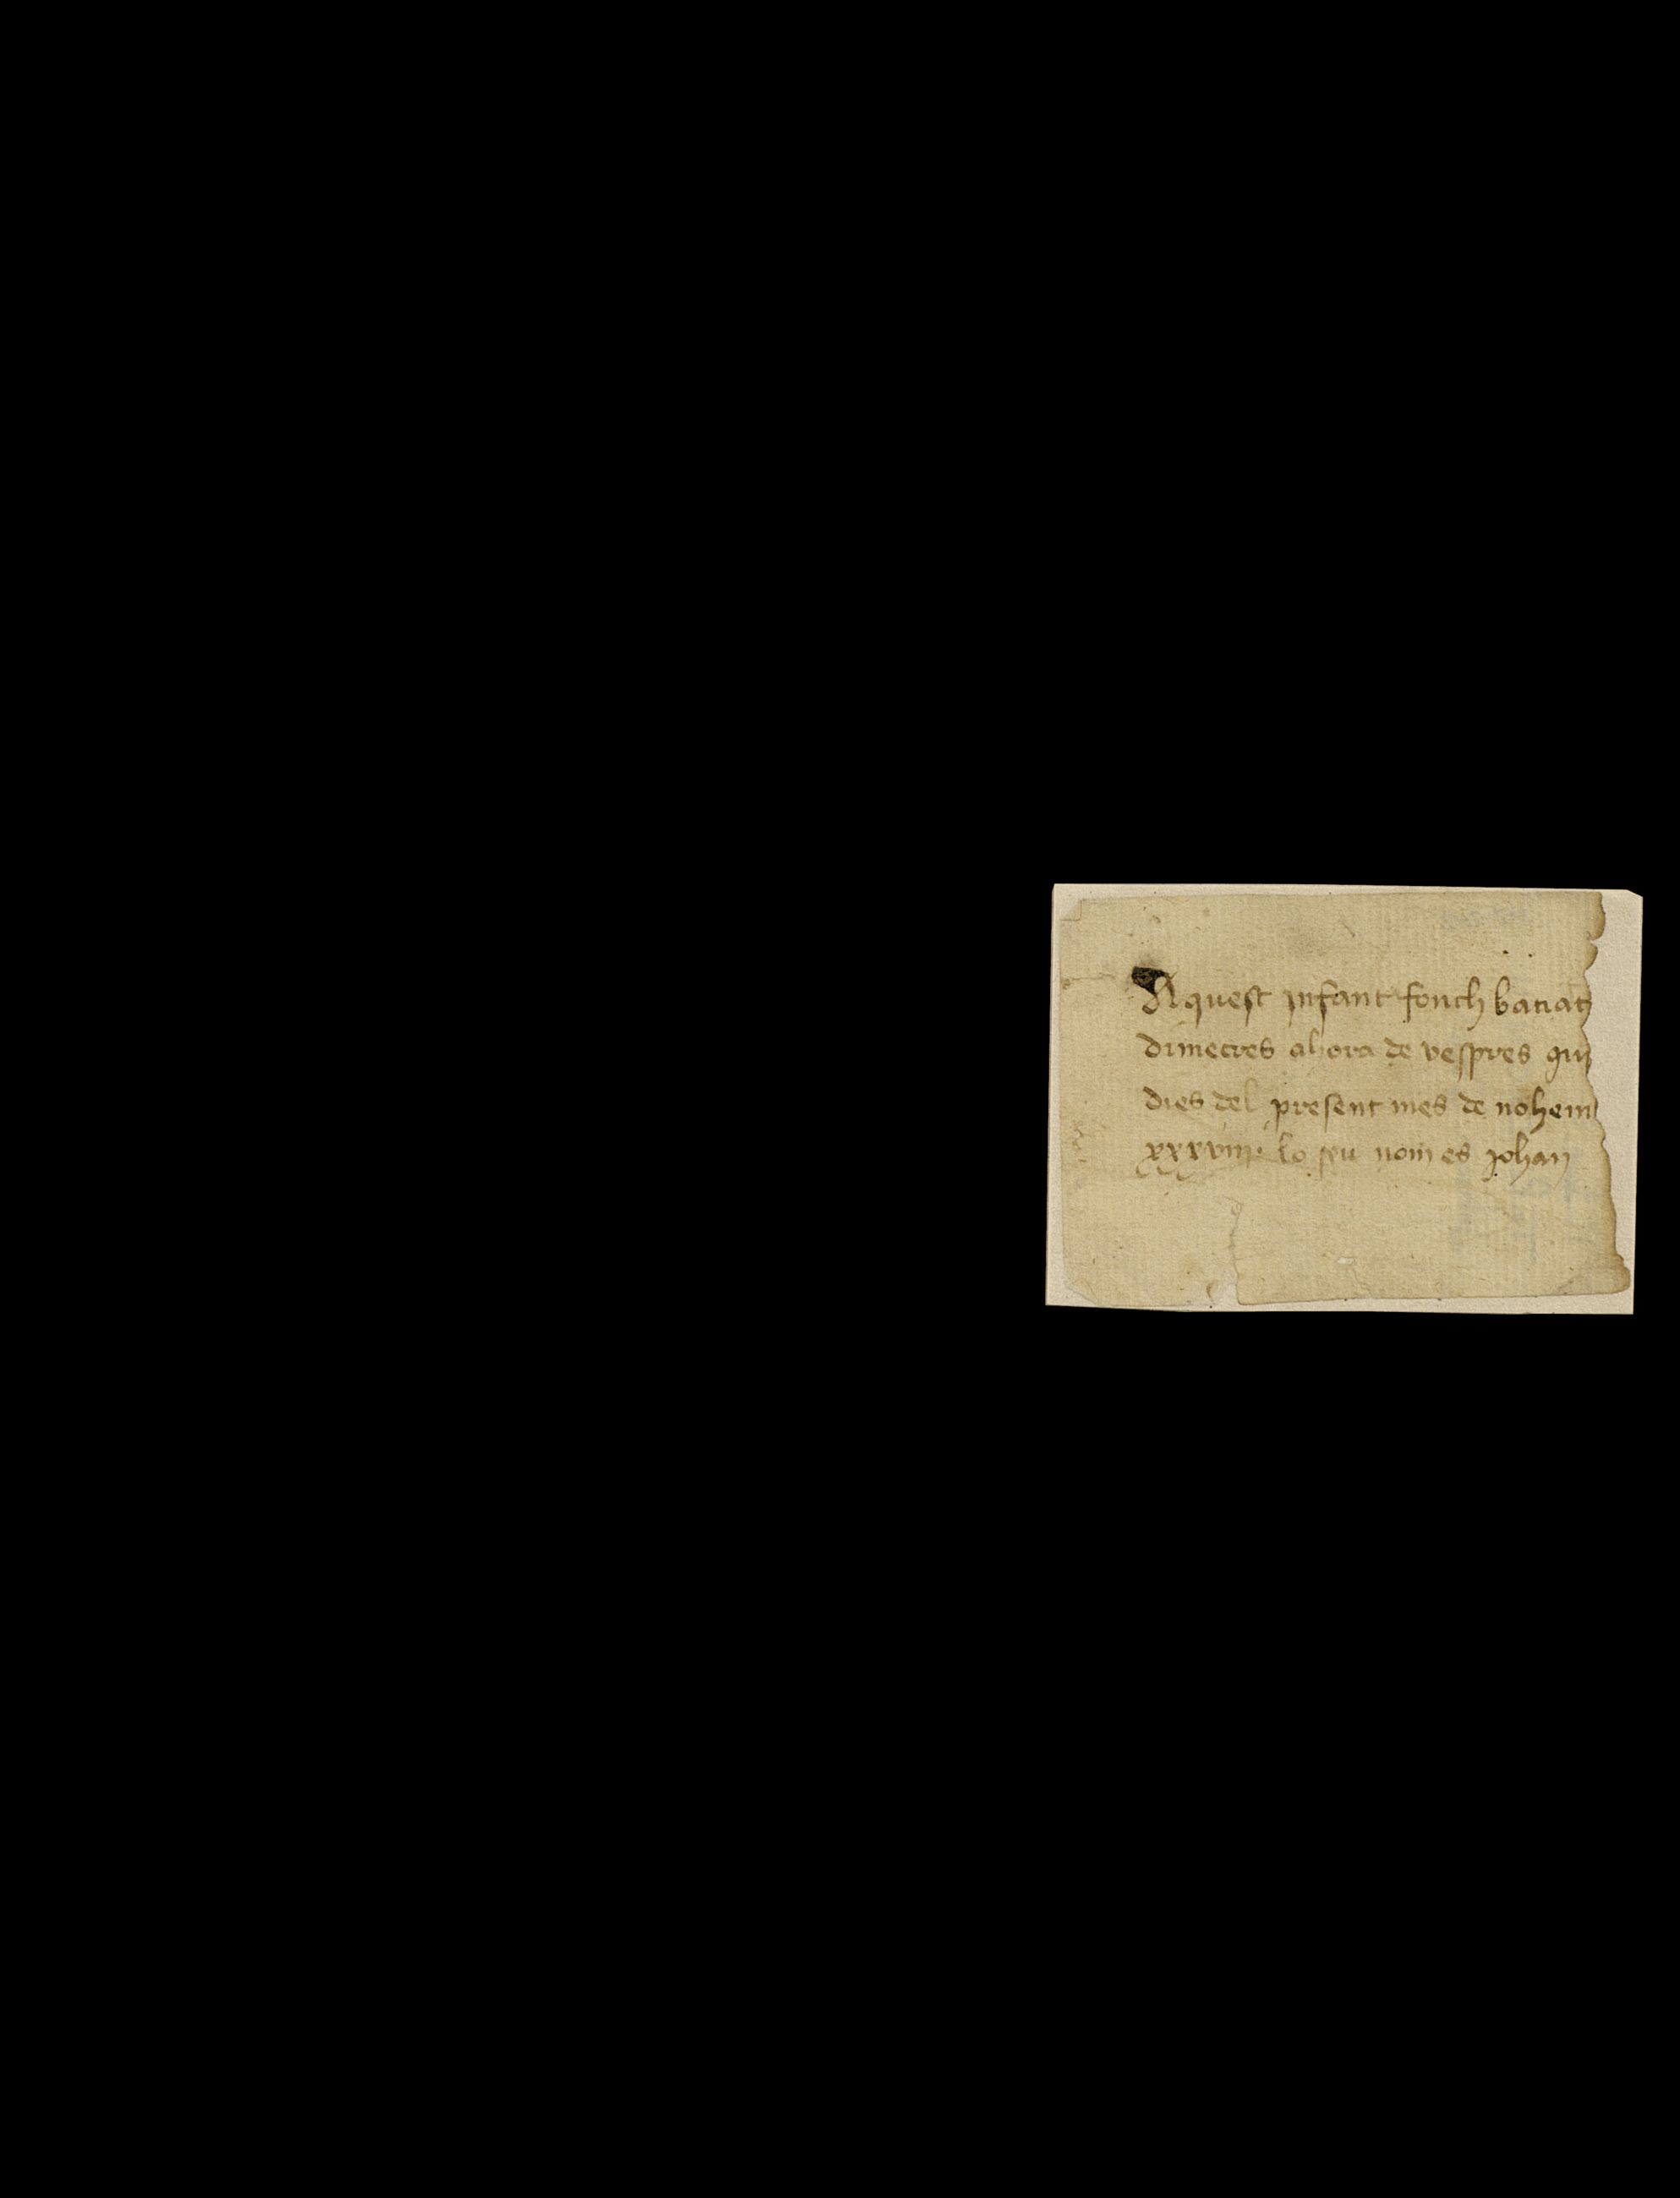 Aquest infant fonch batiat
dimecres ahora de vespres qui
dies del present mes de nohem
xxxviiij. lo seu nom es johan